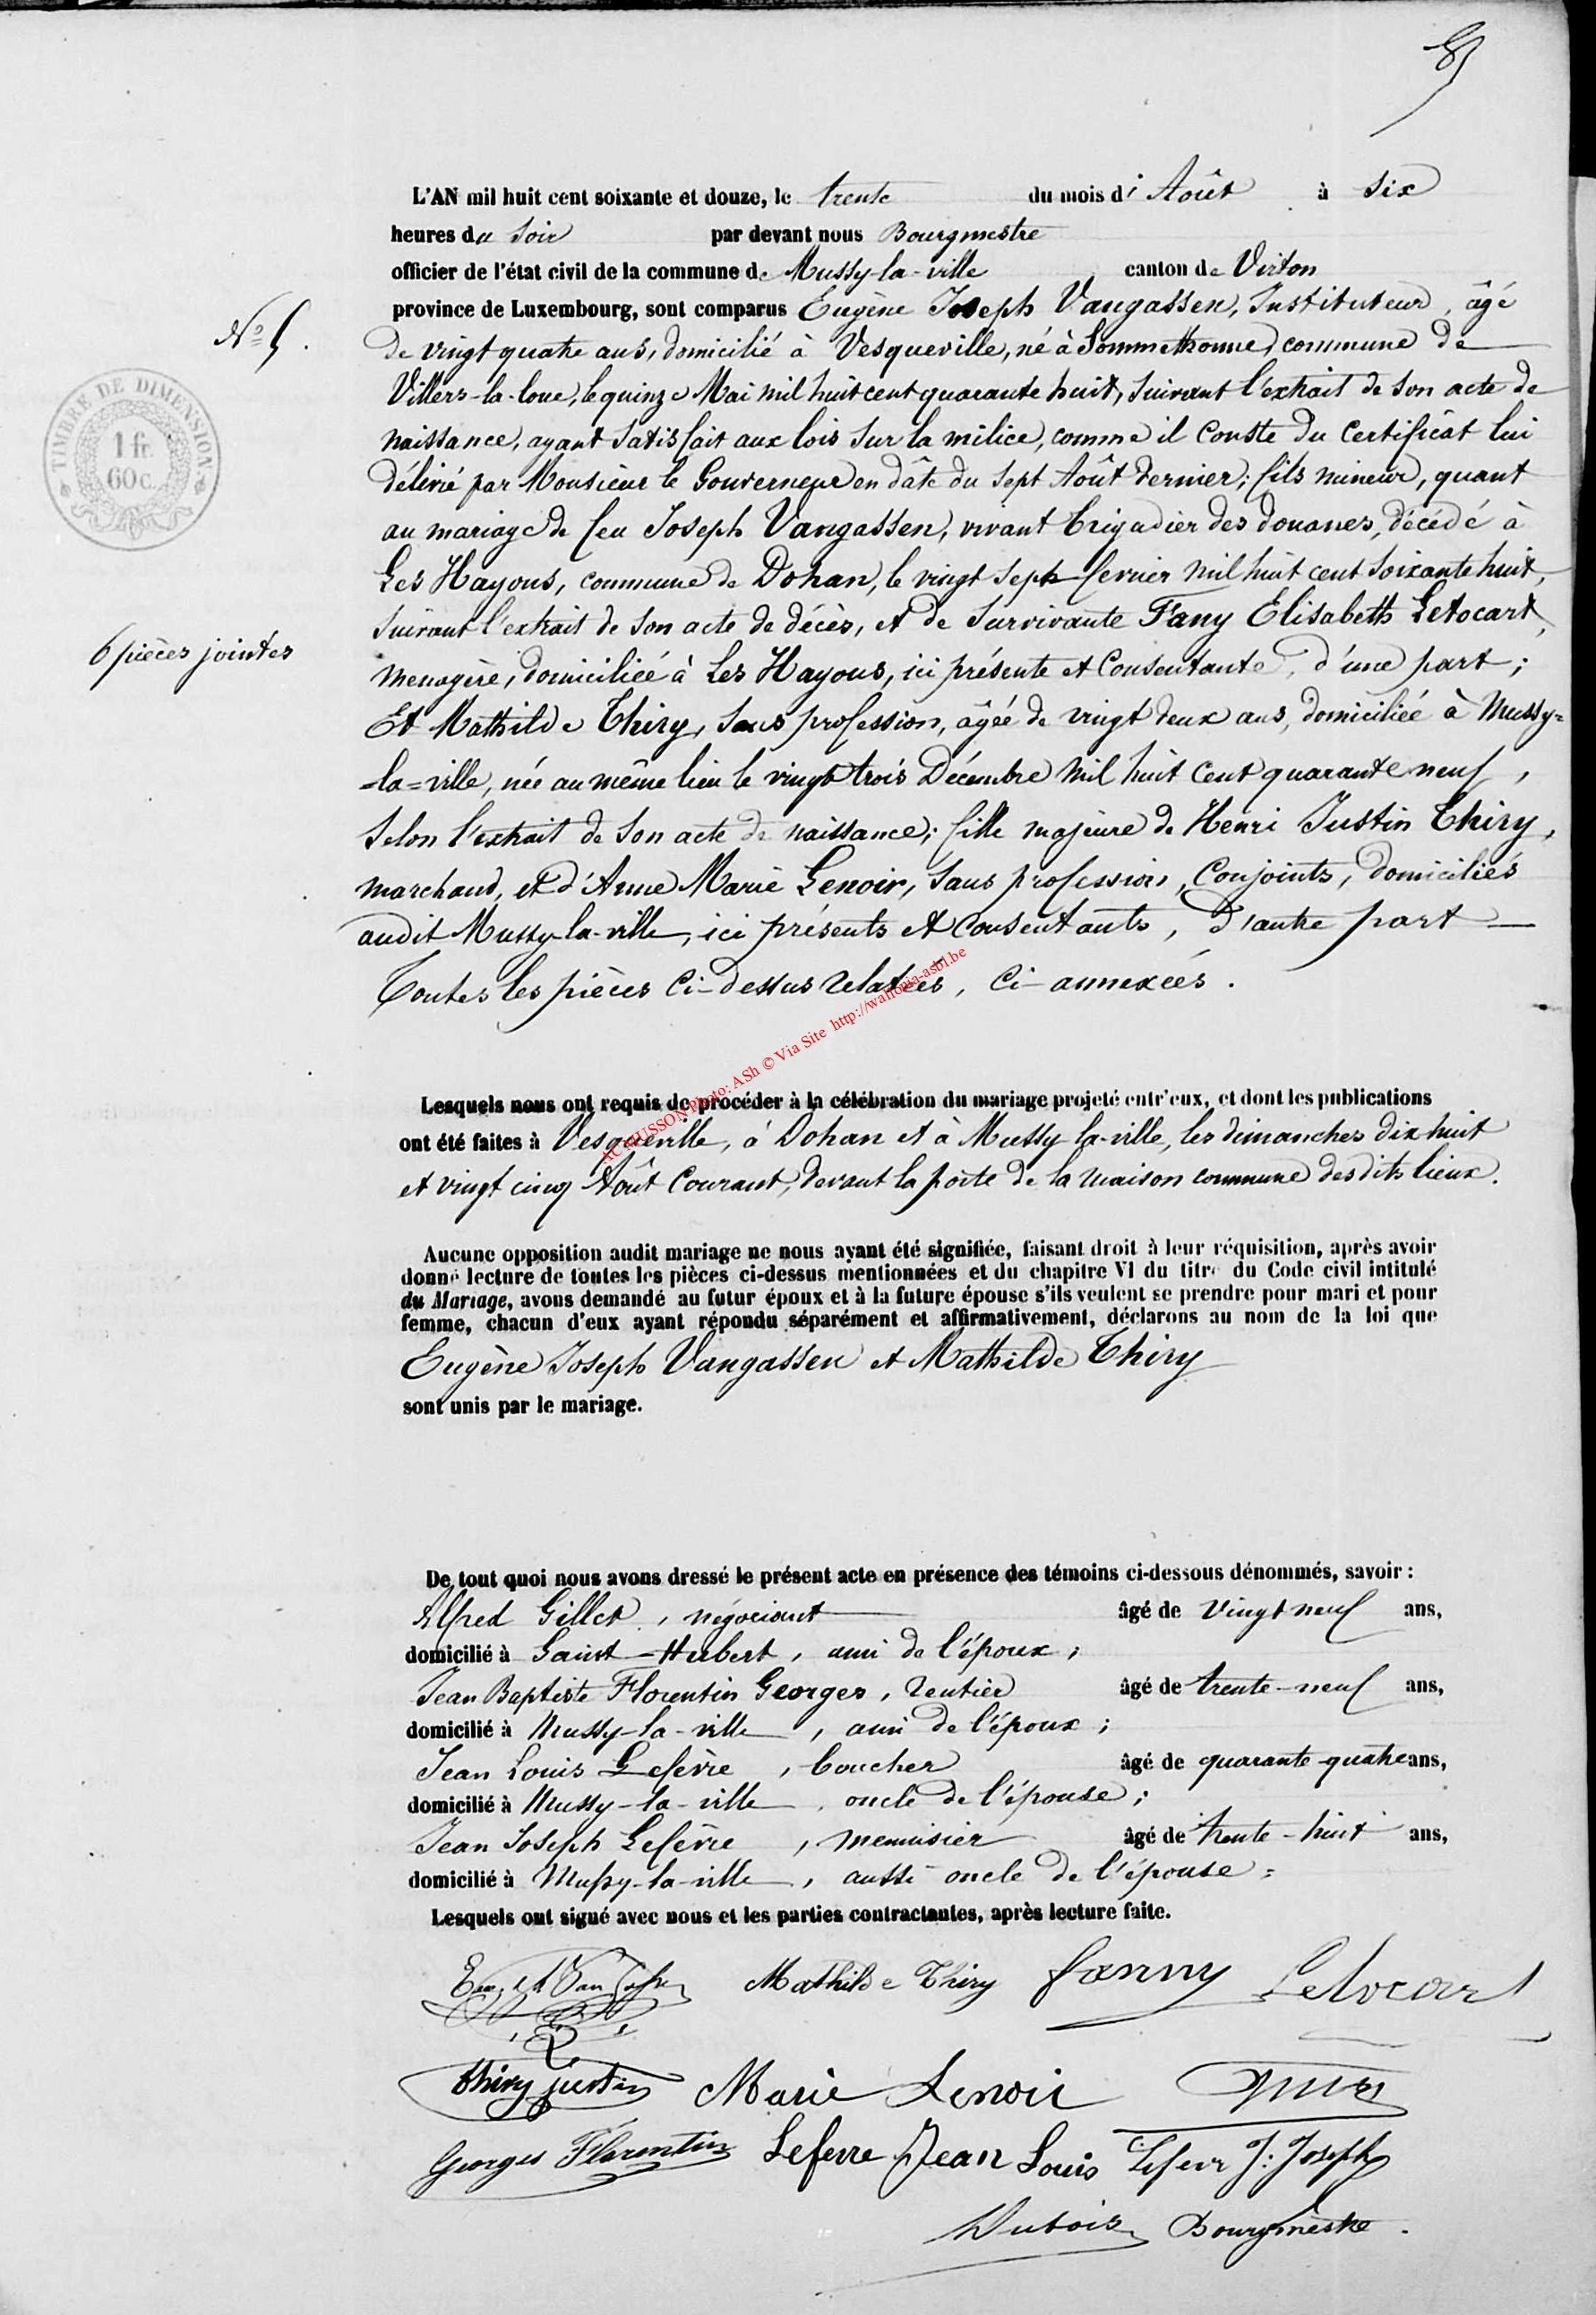 L'AN mil huit cent soixante et douze, le trente du mois d'Août à six
heures du soir par devant nous Bourgmestre
officier de l'état civil de la commune de Mussy-la-ville canton de Virton
province de Luxembourg, sont comparus Eugène Joseph Vangassen, Instituteur, âgé
N° 5.
de vingt quatre ans, domicilié à Vesqueville, né à Sommethonne, commune de
Villers-la-loue, le quinze Mai mil huit cent quarante huit, suivant l'extrait de son acte de
naissance, ayant satisfait aux lois sur la milice, comme il conste du certificat lui
TIMBRE DE DIMENSION
1 fr.
60 c.
délivré par Monsieur le Gouverneur en dâte du sept Août dernier; fils mineur, quant
au mariage de feu Joseph Vangassen, vivant brigadier des douanes, décédé à
Les Hayons, commune de Dohan, le vingt sept fevrier mil huit cent soixante huit,
suivant l'extrait de son acte de décès, et de survivante Fany Elisabeth Letocart,
6 pièces jointes
menagère, domiciliée à Les Hayons, ici présente et consentante, d'une part;
Et Mathilde Thiry, sans profession, âgée de vingt deux ans, domiciliée à Mussy=
=la=ville, née au même lieu le vingt trois Décembre mil huit cent quarante neuf,
selon l'extrait de son acte de naissance; fille majeure de Henri Justin Thiry,
marchand, et d'Anne Marie Lenoir, sans profession, conjoints, domiciliés
audit Mussy-la-ville, ici présents et consentants, d'autre part
Toutes les pièces ci-dessus relatées, ci-annexées.
AC MUSSON Photo: ASh © Via Site http://wallonia-asbl.be
Lesquels nous ont requis de procéder à la célébration du mariage projeté entr'eux, et dont les publications
ont été faites à Vesqueville, à Dohan et à Mussy-la-ville, les dimanches dix huit
et vingt cinq Août courant, devant la porte de la maison commune desdits lieux.
Aucune opposition audit mariage ne nous ayant été signifiée, faisant droit à leur réquisition, après avoir
donné lecture de toutes les pièces ci-dessus mentionnées et du chapitre VI du titre du Code civil intitulé
du Mariage, avons demandé au futur époux et à la future épouse s'ils veulent se prendre pour mari et pour
femme, chacun d'eux ayant répondu séparément et affirmativement, déclarons au nom de la loi que
Eugène Joseph Vangassen et Mathilde Thiry
sont unis par le mariage.
De tout quoi nous avons dressé le présent acte en présence des témoins ci-dessous dénommés, savoir :
Alfred Gillet, négociant âgé de vingt neuf ans,
domicilié à Saint-Hubert, ami de l'époux;
Jean Baptiste Florentin Georges, rentier âgé de trente-neuf ans,
domicilié à Mussy-la-ville, ami de l'époux;
Jean Louis Lefèvre, boucher âgé de quarante-quatre ans,
domicilié à Mussy-la-ville, oncle de l'épouse;
Jean Joseph Lefèvre, menuisier âgé de trente-huit ans,
domicilié à Mussy-la-ville, aussi oncle de l'épouse=
Lesquels ont signé avec nous et les parties contractantes, après lecture faite.
Mathilde Thiry Fanny Letocart
Thiry justin Marie Lenoir
Georges Florentin Lefevre Jean Louis Lefevre J: Joseph
Dubois Bourgmestre.